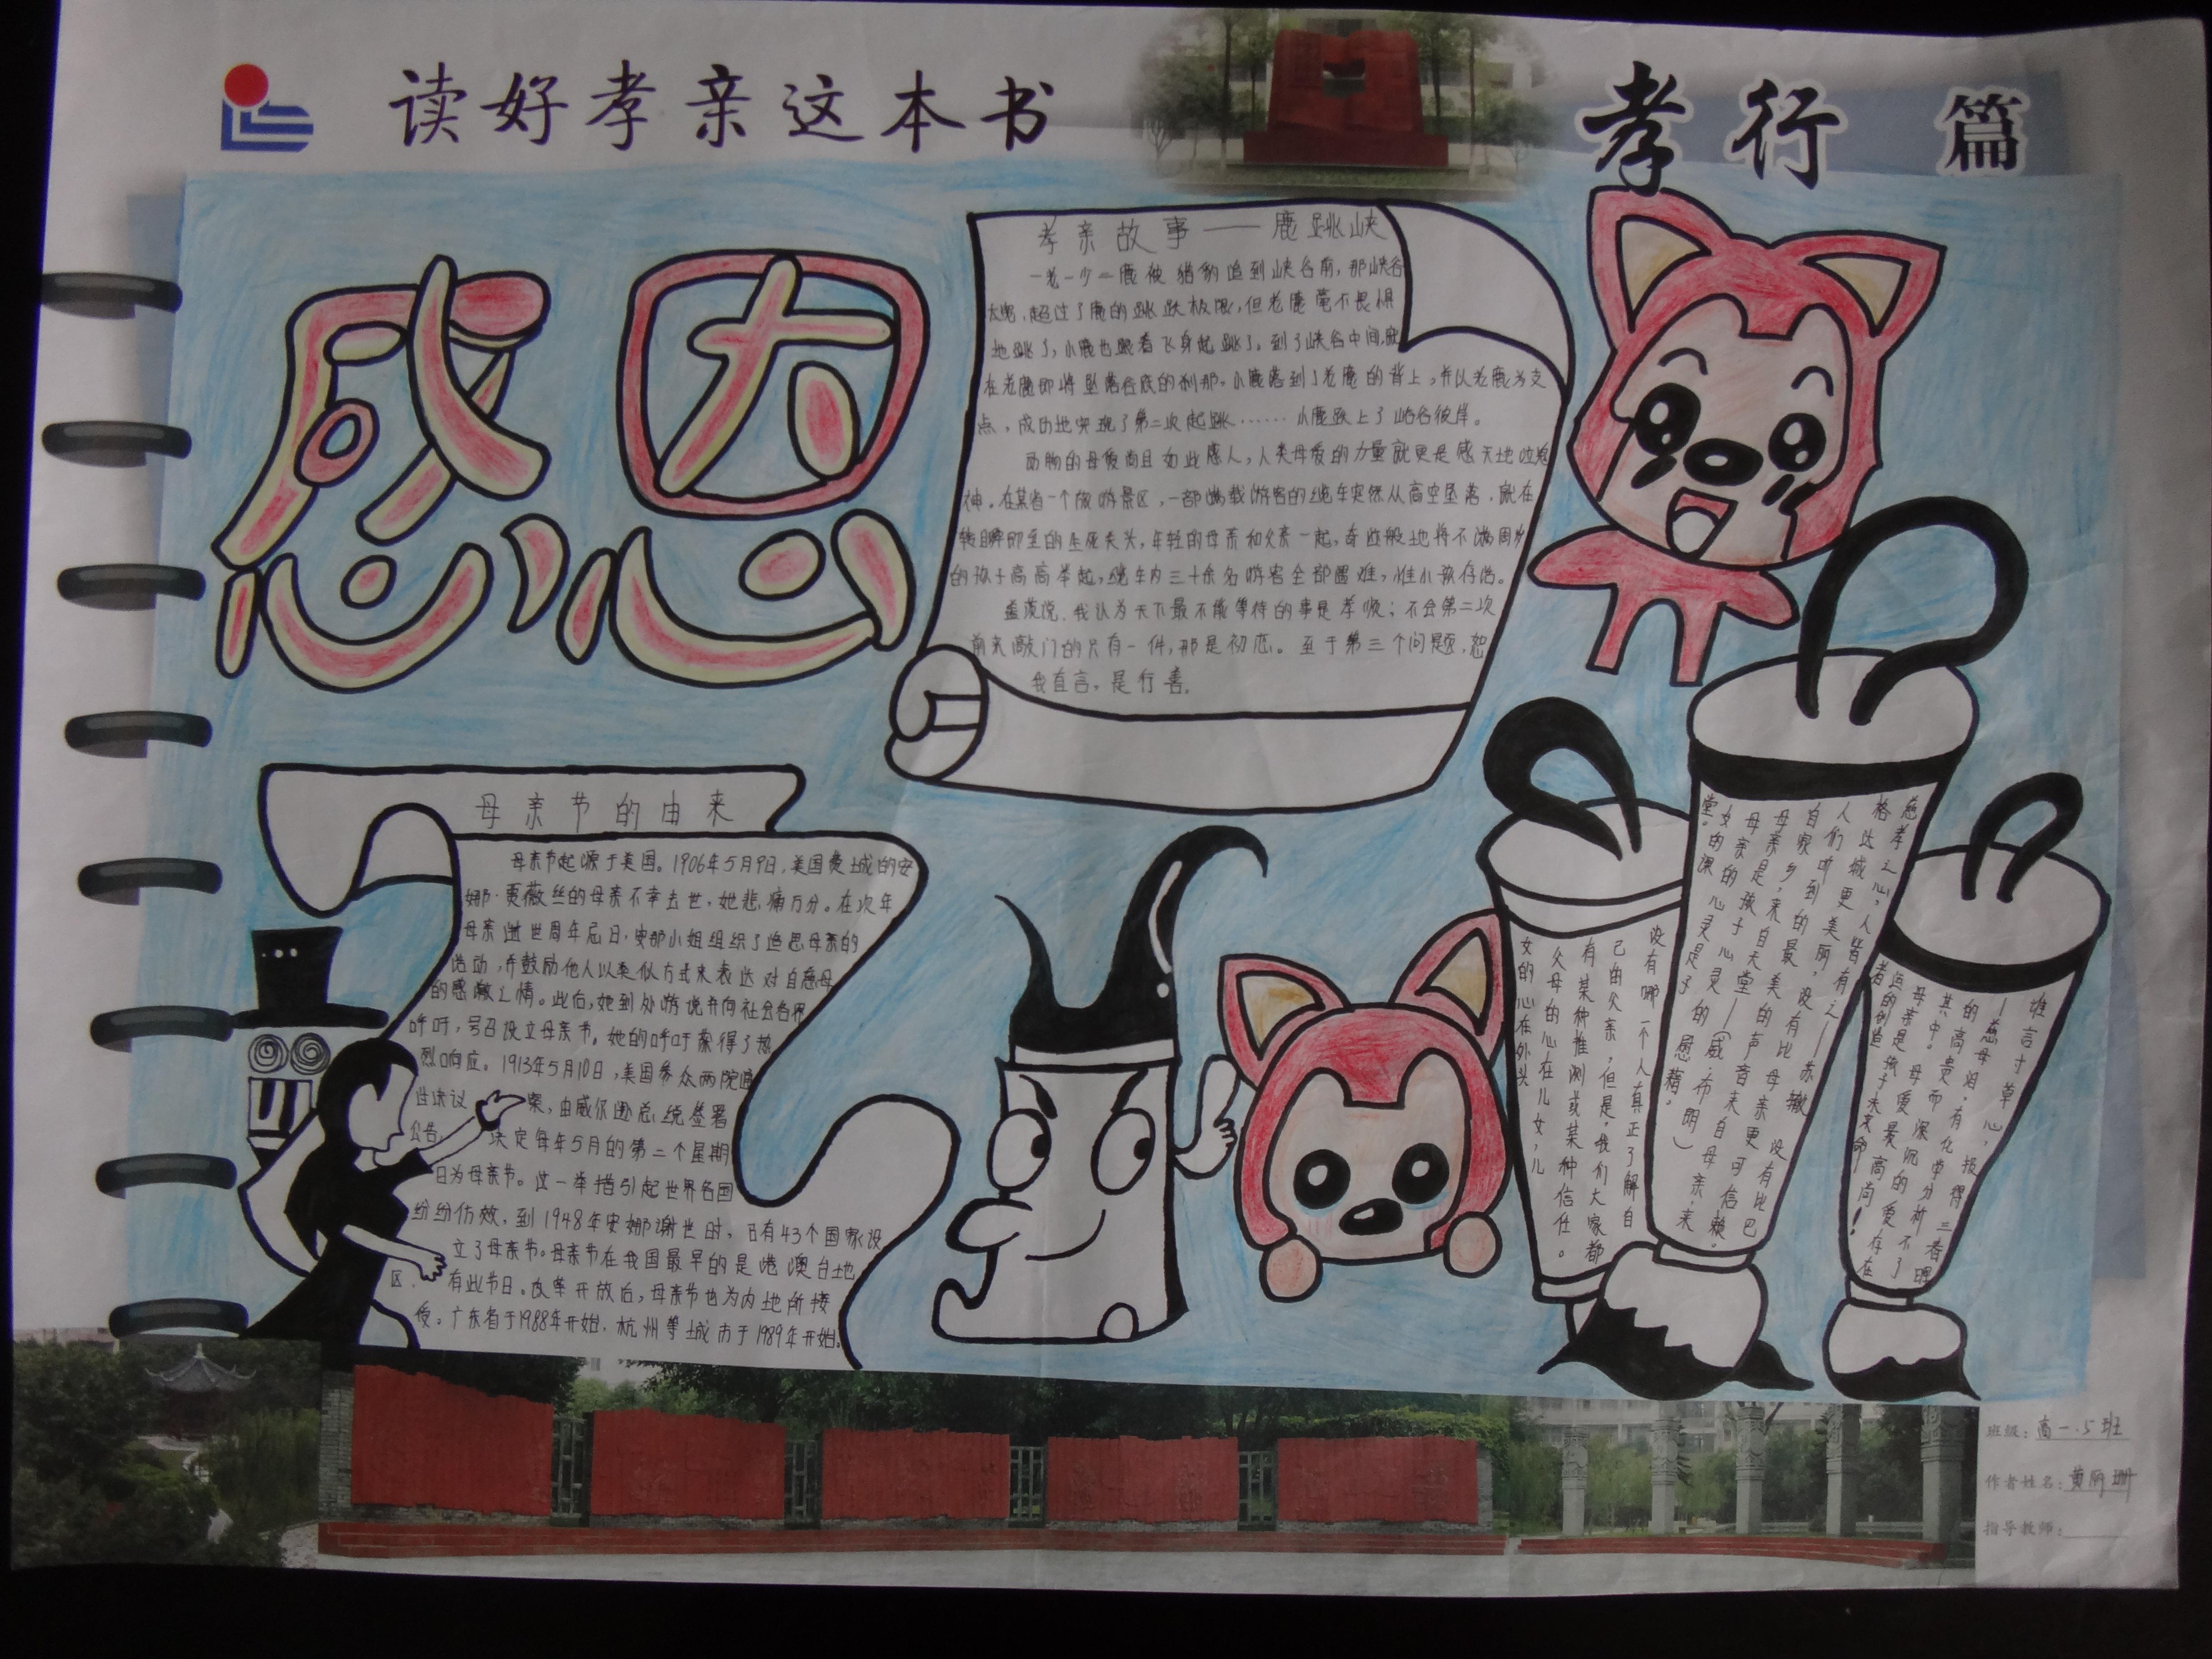 读好孝亲这本书
孝行篇
感恩
孝亲故事——鹿跳峡
一老一少二鹿被猎豹追到峡谷前，那峡谷
太宽，超过了鹿的跳跃极限，但老鹿毫不畏惧
地跳了，小鹿也跟着飞身起跳了。到了峡谷中间，就
在老鹿即将坠落谷底的刹那，小鹿落到了老鹿的背上，并以老鹿为支
点，成功地实现了第二次起跳……小鹿跃上了峡谷彼岸。
动物的母爱尚且如此感人，人类母爱的力量就更是感天地泣鬼
神。在某省一个旅游景区，一部满载游客的缆车突然从高空坠落，就在
转瞬即至的生死关头，年轻的母亲和父亲一起，奇迹般地将不满周岁
的孩子高高举起，缆车内三十余名游客全部遇难，惟小孩存活。
盖茨说，我认为天下最不能等待的事是孝顺；不会第二次
前来敲门的只有一件，那是初恋。至于第三个问题，恕
我直言，是行善。
母亲节的由来
母亲节起源于美国。1906年5月9日，美国费城的安
娜·贾薇丝的母亲不幸去世，她悲痛万分。在次年
母亲逝世周年忌日，安娜小姐组织了追思母亲的
活动，并鼓励他人以类似方式来表达对自慈母
的感激之情。此后，她到处游说并向社会各界
呼吁，号召设立母亲节。她的呼吁获得了热
烈响应。1913年5月10日，美国参众两院通
过决议案，由威尔逊总统签署
公告，决定每年5月的第二个星期
日为母亲节。这一举措引起世界各国
纷纷仿效，到1948年安娜谢世时，已有43个国家设
立了母亲节。母亲节在我国最早的是港澳台地
区，有此节日。改革开放后，母亲节也为内地所接
受。广东省于1988年开始，杭州等城市于1989年开始。
谁言寸草心，报得三春晖
——慈母泪，有化学分析不了
的高贵而深沉的爱存在
其中。母爱
母亲是孩子未来命
运的创造者最高尚！
慈孝之心，人皆有之——苏辙
没有比巴
格达城更美丽，没有比母亲更可信赖。
人们听到的最美的声音来自母亲，来
自家乡，来自天堂——（威·布朗）
母亲是孩子心灵的慰藉。
母亲的心灵是子
女的课
堂。
没有哪一个人真正了解自
己的父亲，但是，我们大家都
有某种推测或某种信任。
父母的心在儿女，儿
女的心在外头
班级：高一.5班
作者姓名：黄丽珊
指导教师：